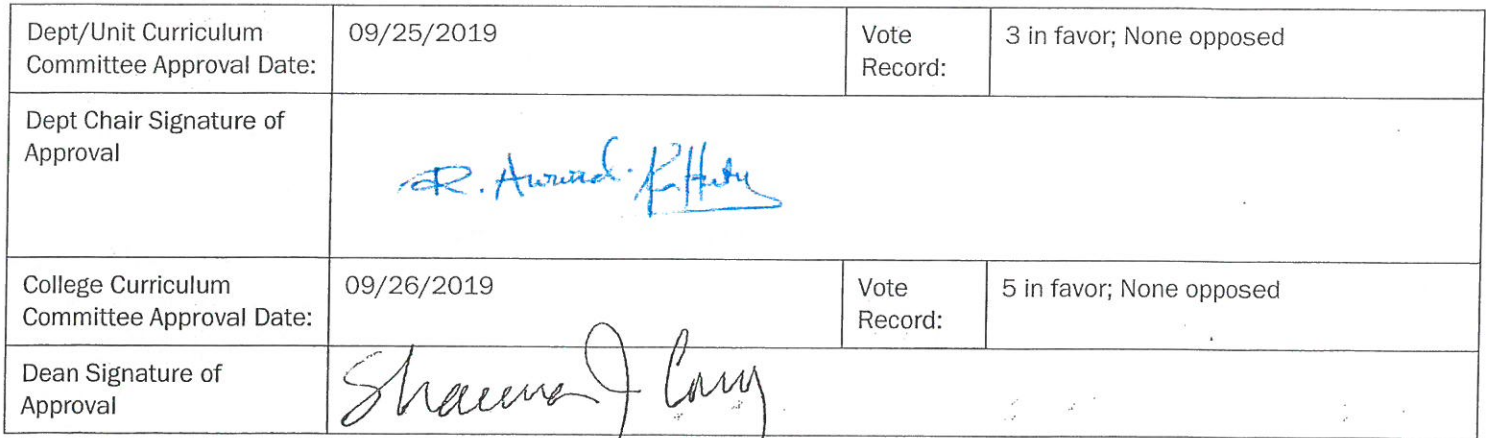 Dept/Unit Curriculum
Committee Approval Date:
09/25/2019
Vote
Record:
3 in favor; None opposed
Dept Chair Signature of
Approval
R.
College Curriculum
Committee Approval Date:
09/26/2019
Vote
Record:
5 in favor; None opposed
Dean Signature of
Approval
Shawna J